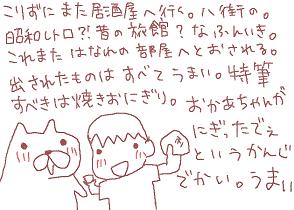 こりずに また 居酒屋へ行く。八街の。
昭和レトロ?!昔の旅館?なふんいき。
これまた はなれの 部屋へとおされる。
出されたものは すべて うまい。特筆
すべきは焼きおにぎり。おかあちゃんが
にぎったでぇ
というかんじ
でかい。うまい